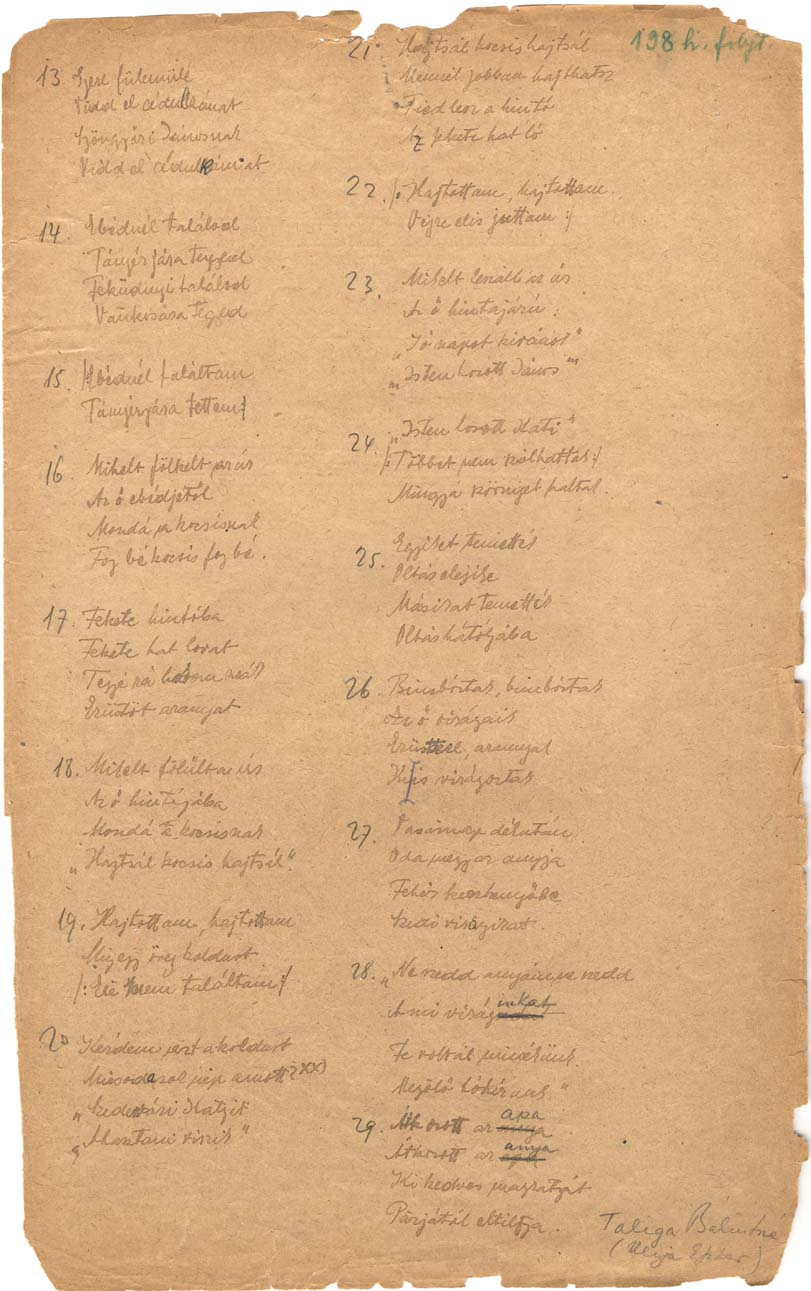 198 h. folyt.
13 Szere fülemülé
Vidd el cédulkámat
Gyöngyösi Jánosnak
Vidd el cédulkámat
14. Ebédnél találod
Tányérjára tegyed
Feküdnyi találod
Vánkosára tegyed
15. /:Ebédnél találtam
Tányérjára tettem:/
16 Mihelt fölkelt az úr
Az ő ebédjétől
Mondá a kocsisnak
Fog bé kocsis fog bé.
17. Fekete hintóba
Fekete hat lovat
Tegyé rá három
Ezüstöt aranyat
18. Mihelt fölült az úr
Az ő hintójába
Mondá a kocsisnak
„Hajtsál kocsis hajtsál".
19. Hajtottam, hajtottam
Míg egy öreg koldust
/: Elé nem találtam:/
20 Kérdém ezt a koldust
Micsoda nép amott? xx)
„ Katyit
„ Alusztani viszik"
21 Hajtsál kocsis hajtsál
Mennél jobban hajthatsz
Tied lesz a hintó
Az fekete hat ló
22. /: Hajtottam, hajtottam.
Végre elis juttam :/
23. Mihelt leszállt az úr
Az ő hintajáru:
„Jó napot kivánok"
„Isten hozott János"
24. „Isten hozott Kati"
/:Többet nem szólhattak:/
Mingyá szörnyet haltak.
25. Egyiket temették
Oltár elejibe
Másikat temették
Oltár hátóljába
26. Bimbóztak, bimbóztak
Az ő virágaik
Ezüsttel, arannyal
Kis virágoztak
27. Vasárnap délután
Oda megy az anyja
Fehér keszkenyőbe
Szedi virágikat.
28. „Ne szedd anyám ne szedd
A mi viráginkat
Te voltál minékünk
Megölő hóhérunk"
29. Átkozott az apa
Átkozott az anya
Ki kedves magzatját
Párjától eltiltja.
Taliga Bálintné
(Ulija Eszter)